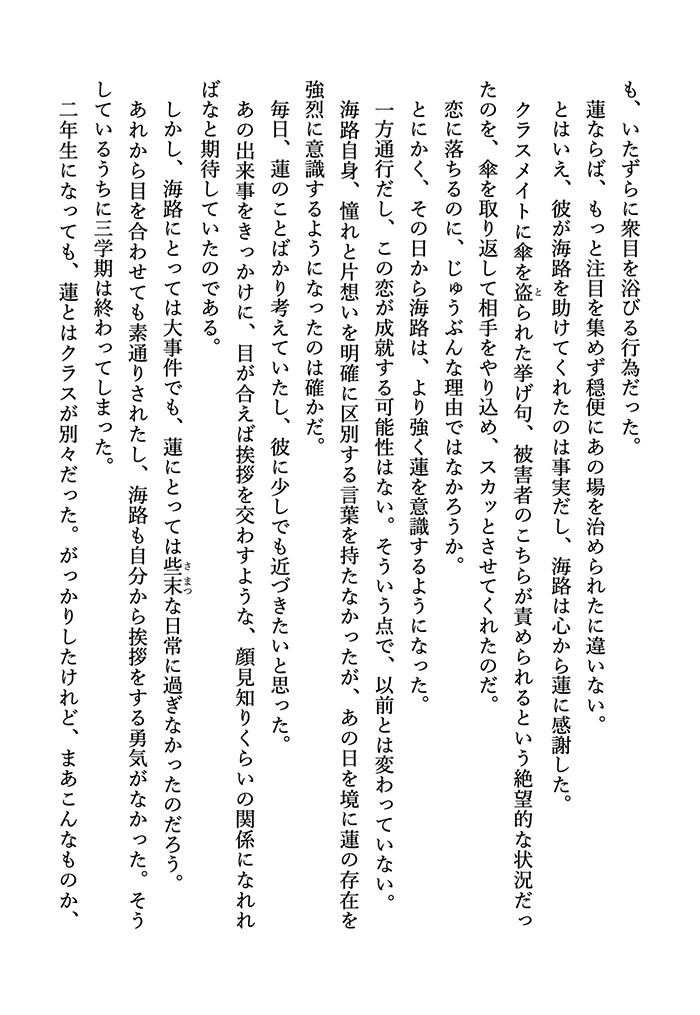 も、いたずらに衆目を浴びる行為だった。
蓮ならば、もっと注目を集めず穏便にあの場を治められたに違いない。
とはいえ、彼が海路を助けてくれたのは事実だし、海路は心から蓮に感謝した。
クラスメイトに傘を盗られた挙げ句、被害者のこちらが責められるという絶望的な状況だっ
たのを、傘を取り返して相手をやり込め、スカッとさせてくれたのだ。
恋に落ちるのに、じゅうぶんな理由ではなかろうか。
とにかく、その日から海路は、より強く蓮を意識するようになった。
一方通行だし、この恋が成就する可能性はない。そういう点で、以前とは変わっていない。
海路自身、憧れと片想いを明確に区別する言葉を持たなかったが、あの日を境に蓮の存在を
強烈に意識するようになったのは確かだ。
毎日、蓮のことばかり考えていたし、彼に少しでも近づきたいと思った。
あの出来事をきっかけに、目が合えば挨拶を交わすような、顔見知りくらいの関係になれれ
ばなと期待していたのである。
しかし、海路にとっては大事件でも、蓮にとっては些末な日常に過ぎなかったのだろう。
あれから目を合わせても素通りされたし、海路も自分から挨拶をする勇気がなかった。そう
しているうちに三学期は終わってしまった。
二年生になっても、蓮とはクラスが別々だった。がっかりしたけれど、まあこんなものか、